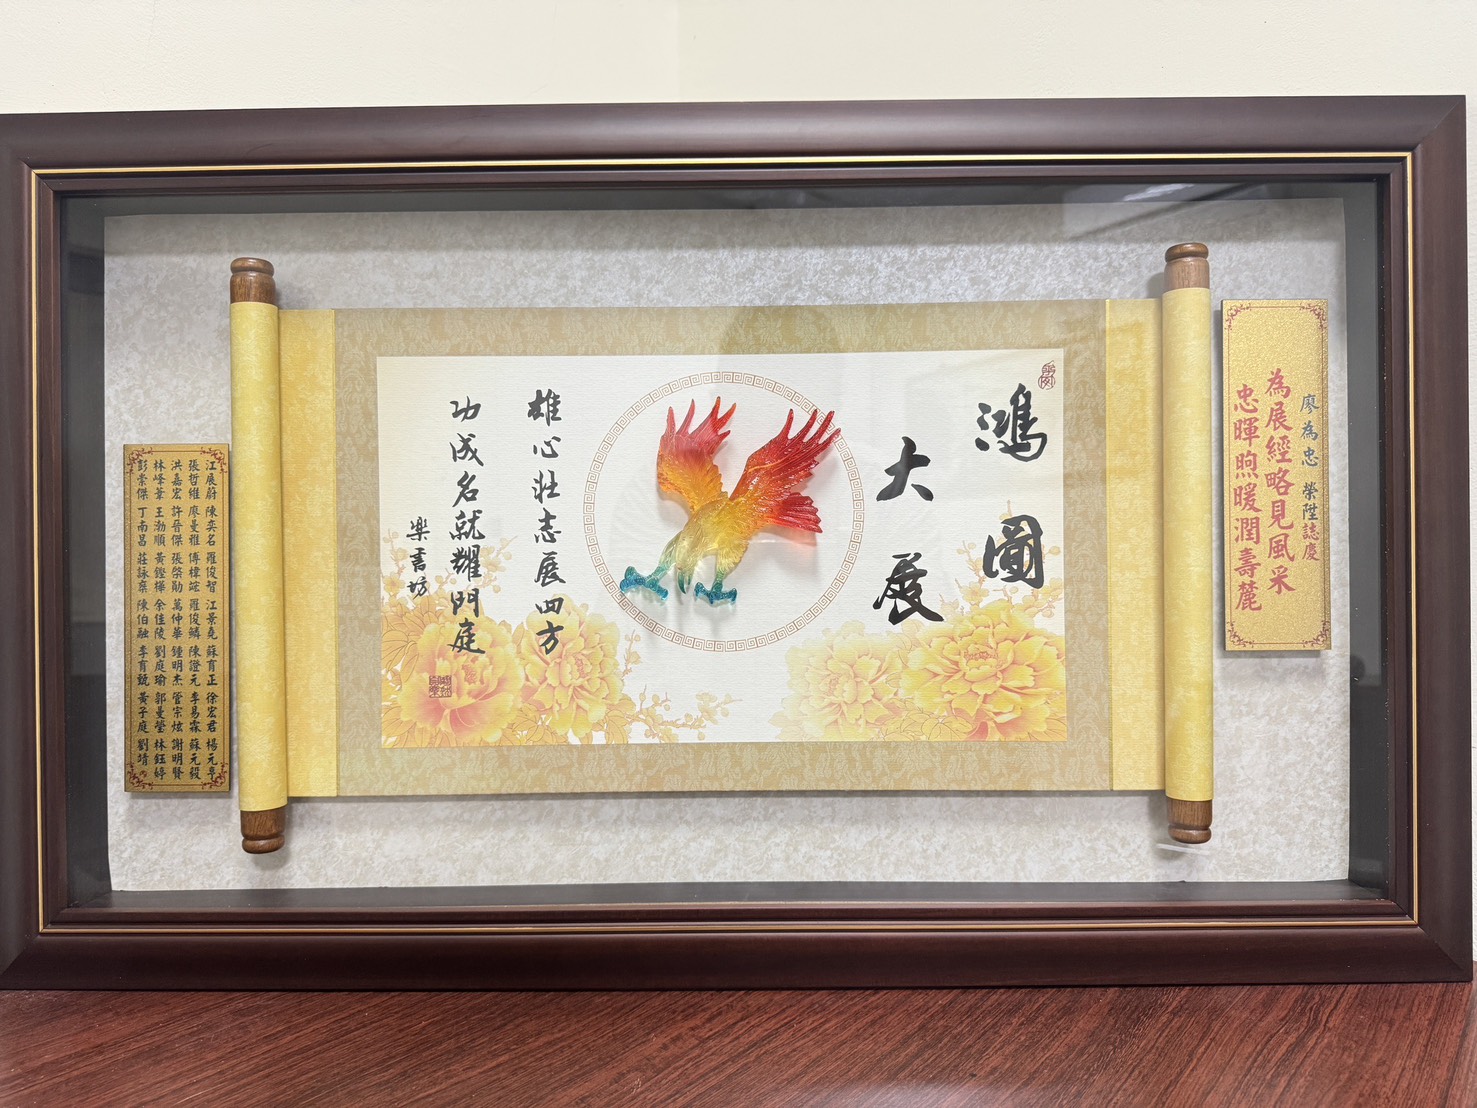 廖為忠 榮陞誌慶
為展經略見風采
忠暉煦暖潤壽麓
鴻圖
大展
雄心壯志展四方
功成名就耀門庭
樂書坊
江展蔚 陳奕名 羅俊智 江景堯 蘇育正 徐宏君 楊元亨
張哲維 廖曼雅 傅樟誌 羅俊鱗 陳證元 李易霖 蘇元毅
洪嘉宏 許晉傑 張棨勛 萬仲華 鍾明杰 管宗炫 謝明賢
林峰葦 王渤順 黃鐙樺 余佳陵 劉庭瑜 郭曼瑩 林鈺婷
彭崇傑 丁南昌 莊詠棻 陳伯融 李育競 黃子庭 劉靖